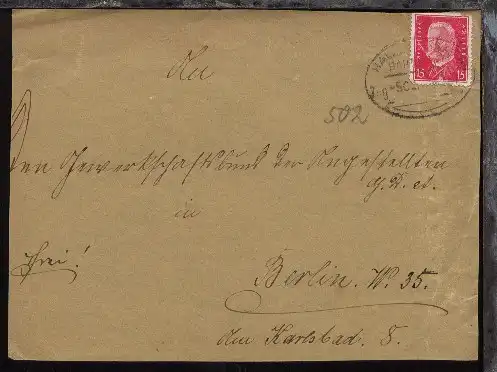 An
502
den Gewerkschaftsbund der Angestellten
G. D. A.
in
frei!
Berlin. W. 35.
Am Karlsbad. 8.
15 15